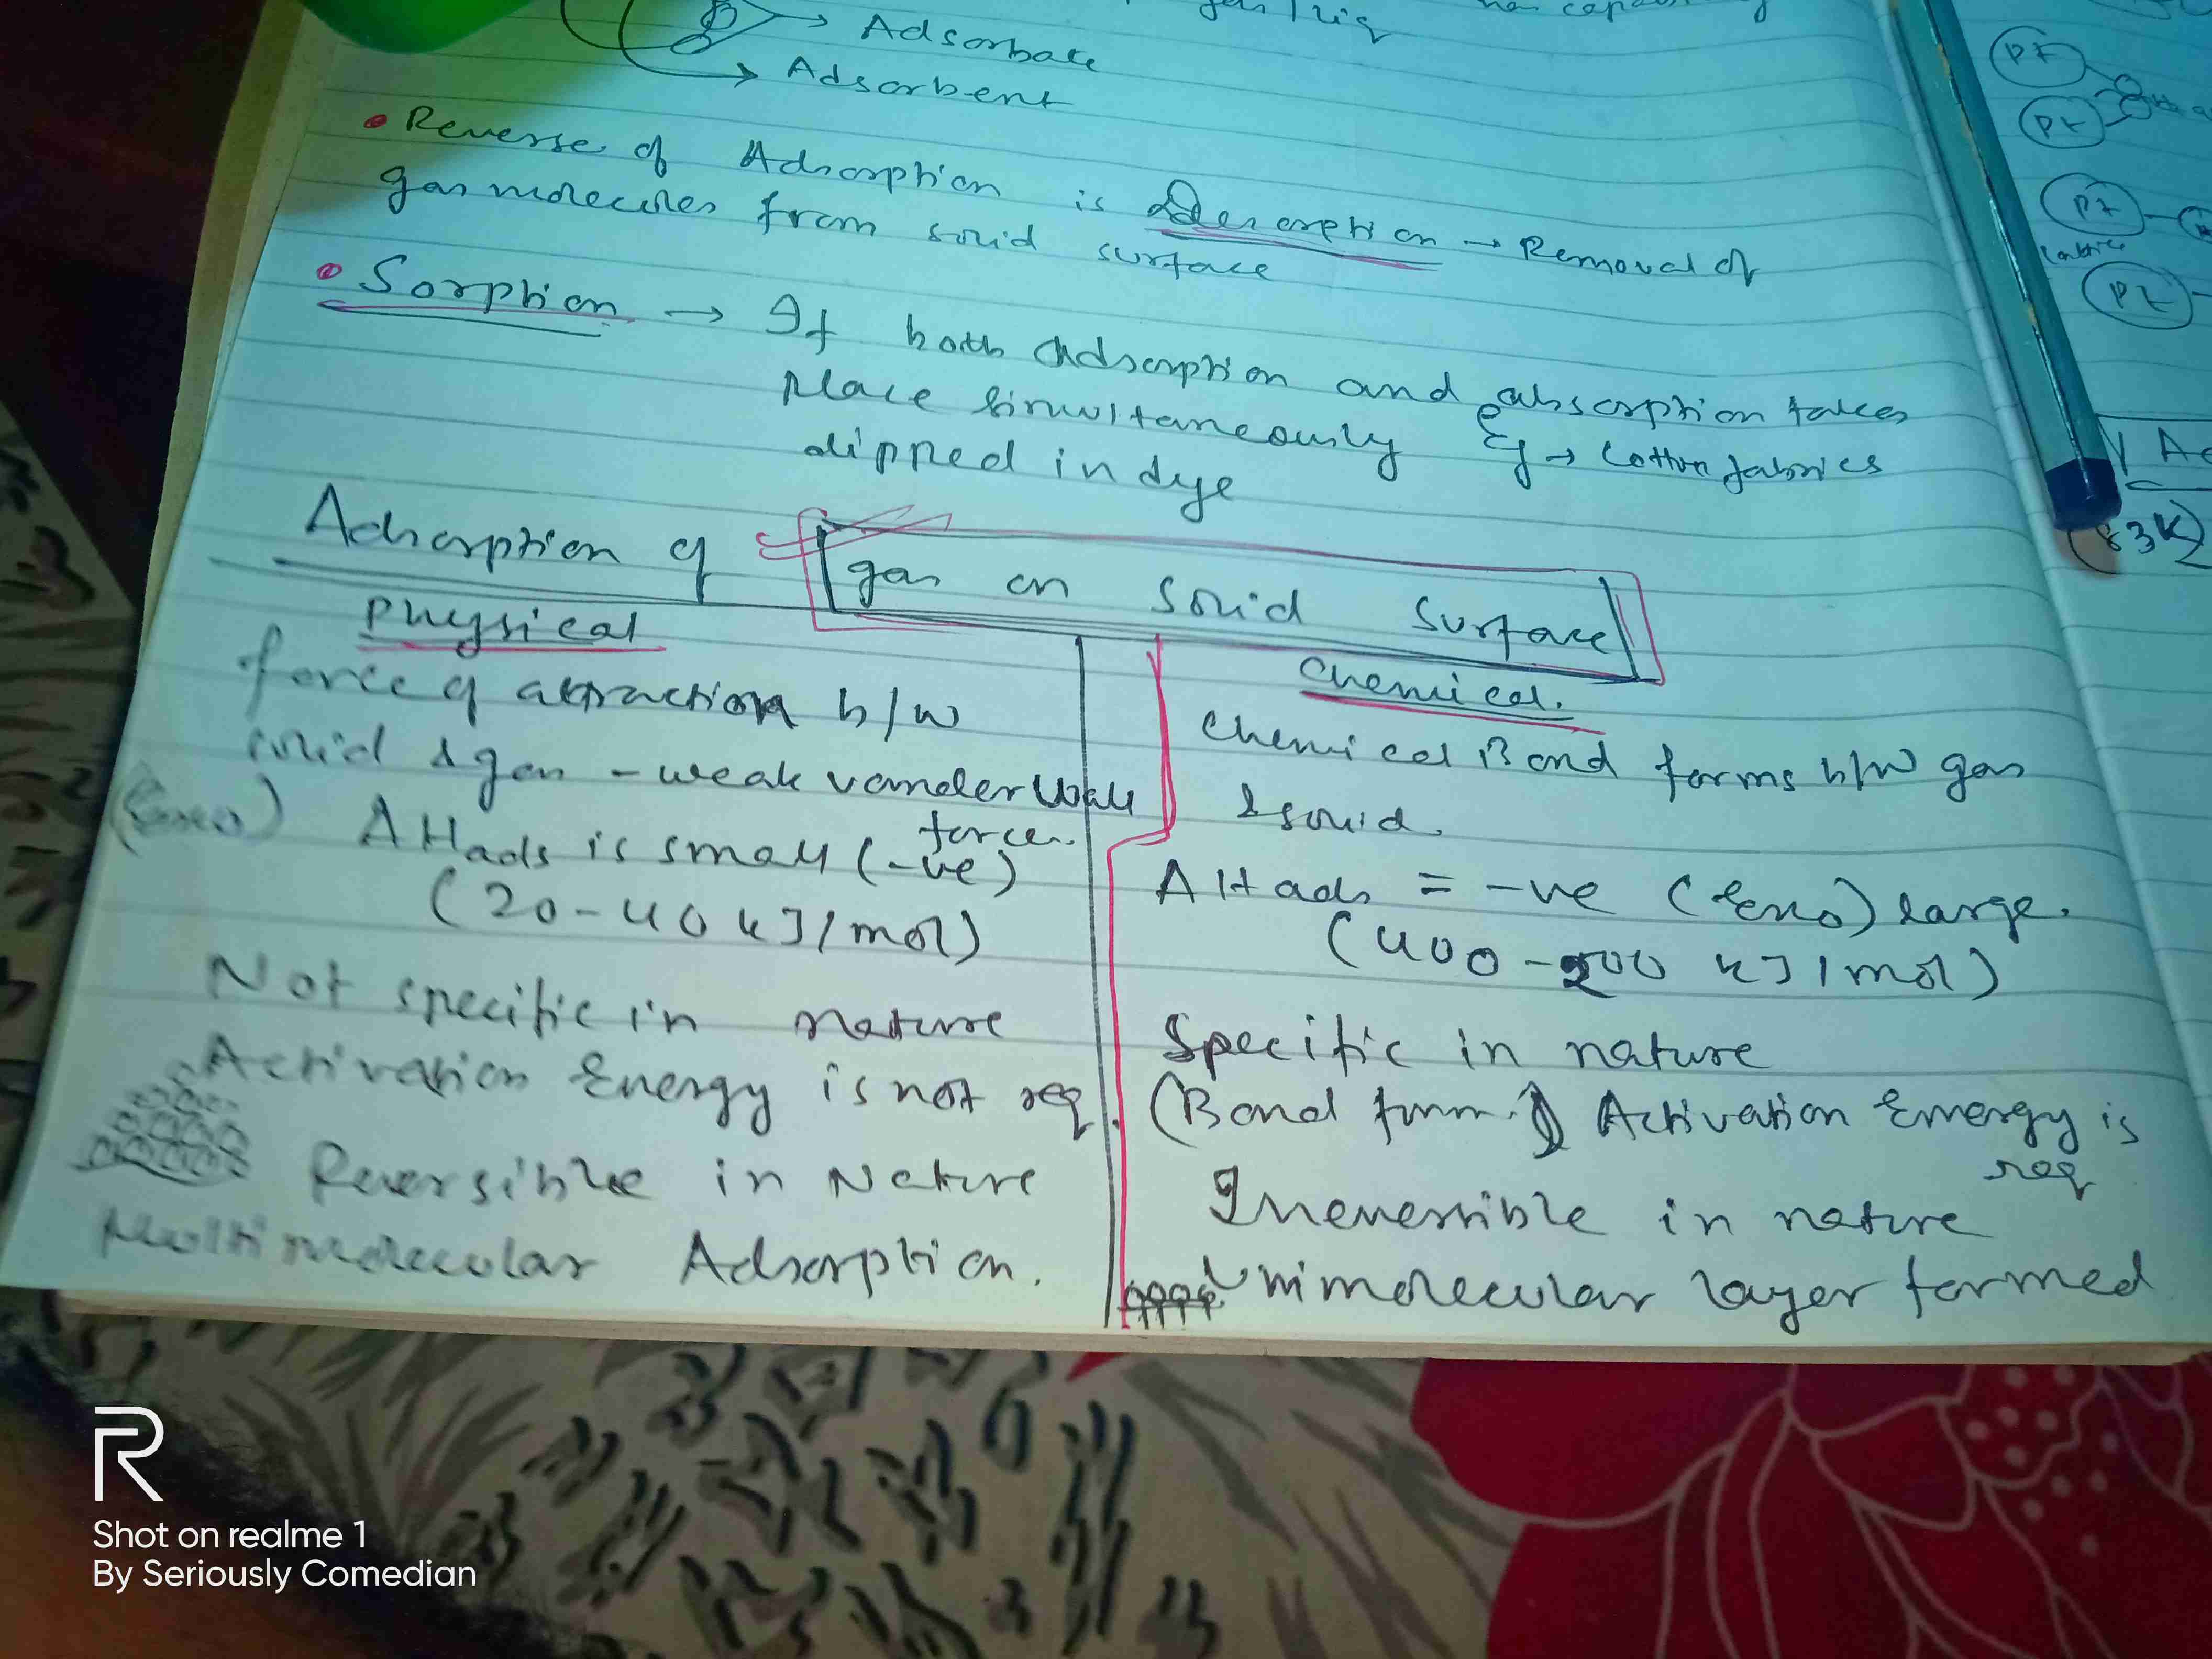 gas/liq
→ Adsorbate
→ Adsorbent
• Reverse of Adsorption is Desorption → Removal of
gas molecules from solid surface
• Sorption → If both Adsorption and absorption takes
place simultaneously Eg → Cotton fabrics
dipped in dye
Adsorption of gas on solid surface
Physical
force of attraction b/w
solid & gas - weak vanderwall
forces.
(Exo) ΔHads is small (-ve)
(20-40 kJ/mol)
Not specific in nature
Activation Energy is not req.
Reversible in Nature
Multimolecular Adsorption.
Chemical.
Chemical Bond forms b/w gas
& solid.
ΔHads = -ve (Exo) large.
(400-200 kJ/mol)
Specific in nature
(Bond form.) Activation Energy is
req
Irreversible in nature
Unimolecular layer formed
Pt
Pt
Pt
Pt
(83K)
R
Shot on realme 1
By Seriously Comedian